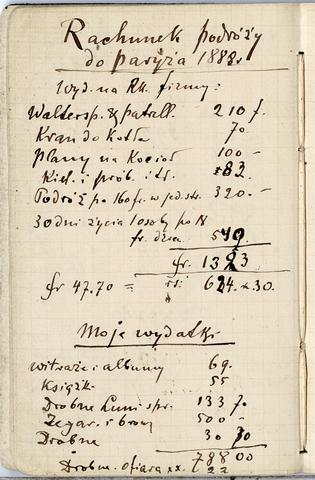 Rachunek podróży
do paryża 1888 r
Wyd. na Rk. firmy:
Waltersp. & patall. 210 f.
Kran do Kotła 70.
Plany na Kocioł 100 –
Kiel. i prób. i t. 83
Podróż po 160 fr. w jed. str. 320. –
30 dni życia 1 osoby po 18
fr. dzien. 540.
fr. 1323
fr 47.70 = rs. 624 . 30.
Moje wydatki
witraże i albumy 69.
Książk. 55
Drobne spr. 133 70
Zegar. i bron 500 –
Drobne 30 30
788 00
Drobn. ofiara xx. 22